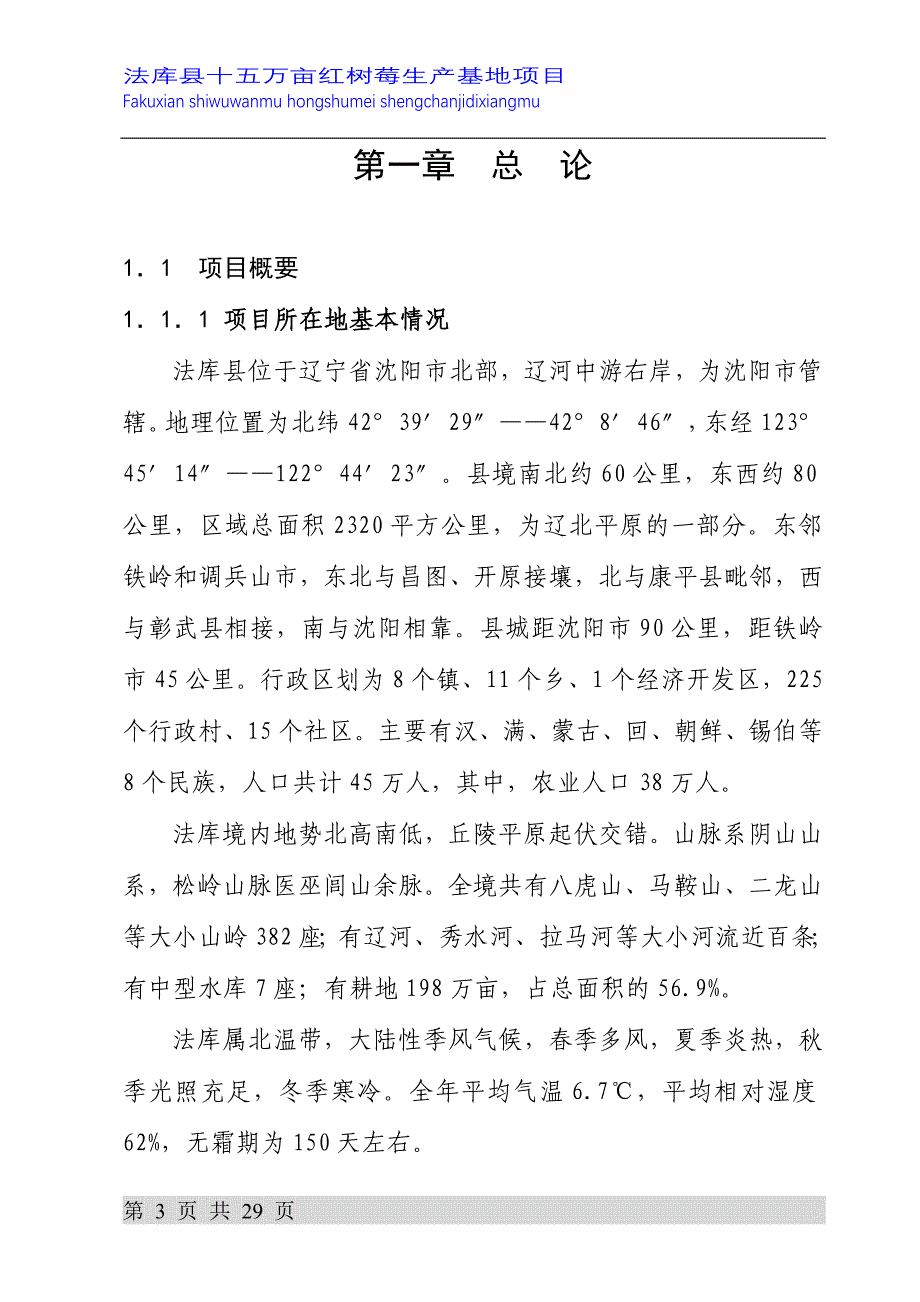 法库县十五万亩红树莓生产基地项目
Fakuxian shiwuwanmu hongshumei shengchanjidixiangmu
第一章 总 论
1．1 项目概要
1．1．1 项目所在地基本情况
法库县位于辽宁省沈阳市北部，辽河中游右岸，为沈阳市管
辖。地理位置为北纬 42°39′29″——42°8′46″,东经 123°
45′14″——122°44′23″。县境南北约 60 公里，东西约 80
公里，区域总面积 2320 平方公里，为辽北平原的一部分。东邻
铁岭和调兵山市，东北与昌图、开原接壤，北与康平县毗邻，西
与彰武县相接，南与沈阳相靠。县城距沈阳市 90 公里，距铁岭
市 45 公里。行政区划为 8 个镇、11 个乡、1 个经济开发区，225
个行政村、15 个社区。主要有汉、满、蒙古、回、朝鲜、锡伯等
8 个民族，人口共计 45 万人，其中，农业人口 38 万人。
法库境内地势北高南低，丘陵平原起伏交错。山脉系阴山山
系，松岭山脉医巫闾山余脉。全境共有八虎山、马鞍山、二龙山
等大小山岭 382 座；有辽河、秀水河、拉马河等大小河流近百条；
有中型水库 7 座；有耕地 198 万亩，占总面积的 56.9%。
法库属北温带，大陆性季风气候，春季多风，夏季炎热，秋
季光照充足，冬季寒冷。全年平均气温 6.7℃，平均相对湿度
62%，无霜期为 150 天左右。
第 3 页 共 29 页